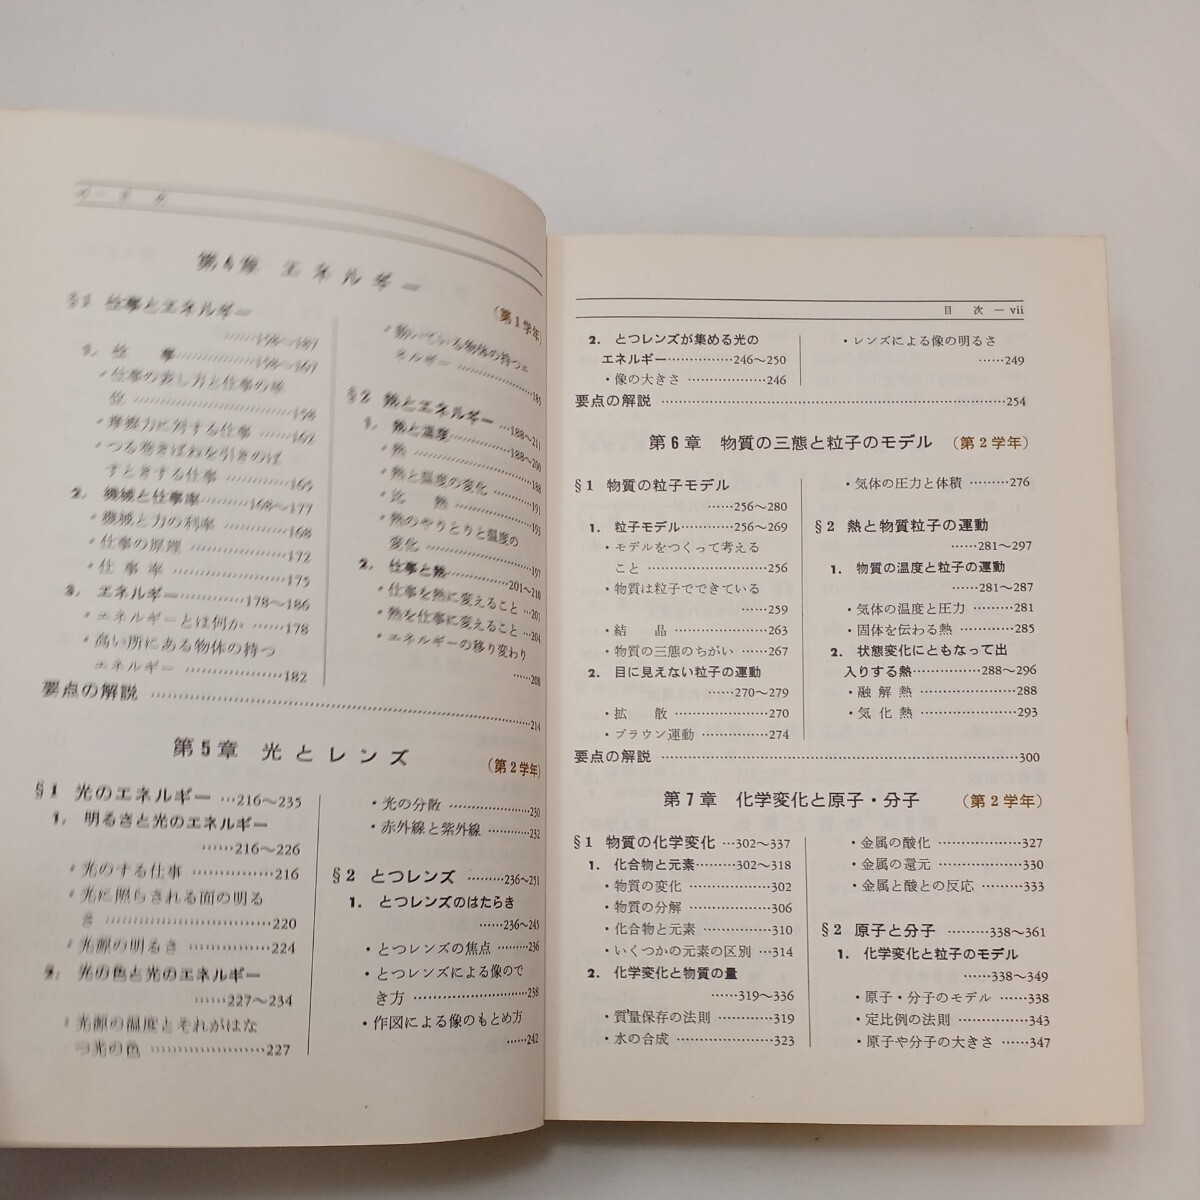 第4章 エネルギー
(第1学年)
§1 仕事とエネルギー
……158〜187
1. 仕 事……………158〜167
・仕事の表し方と仕事の単
位……………………158
・摩擦力に対する仕事……162
・つる巻きばねを引きのば
すときする仕事………165
2. 機械と仕事率……168〜177
・機械と力の利率…………168
・仕事の原理………………172
・仕 事 率…………………175
3. エネルギー…………178〜186
・エネルギーとは何か……178
・高い所にある物体の持つ
エネルギー………………182
・動いている物体の持つエ
ネルギー…………………185
§2 熱とエネルギー……188〜211
1. 熱と温度……………188〜200
・熱…………………………188
・熱と温度の変化…………191
・比 熱……………………193
・熱のやりとりと温度の
変化………………………197
2. 仕事と熱……………201〜210
・仕事を熱に変えること…201
・熱を仕事に変えること…204
・エネルギーの移り変わり
……208
要点の解説……………………………………214
第5章 光とレンズ (第2学年)
§1 光のエネルギー…216〜235
1. 明るさと光のエネルギー
……216〜226
・光のする仕事……………216
・光に照らされる面の明る
さ…………………………220
・光源の明るさ……………224
2. 光の色と光のエネルギー
……227〜234
・光源の温度とそれがはな
つ光の色…………………227
・光の分散…………………230
・赤外線と紫外線…………232
§2 とつレンズ………236〜251
1. とつレンズのはたらき
……236〜245
・とつレンズの焦点………236
・とつレンズによる像ので
き方………………………238
・作図による像のもとめ方
……242
目 次 ― vii
2. とつレンズが集める光の
エネルギー……………246〜250
・像の大きさ………………246
・レンズによる像の明るさ
……249
要点の解説……………………………………254
第6章 物質の三態と粒子のモデル (第2学年)
§1 物質の粒子モデル
……256〜280
1. 粒子モデル…………256〜269
・モデルをつくって考える
こと………………………256
・物質は粒子でできている
……259
・結 晶……………………263
・物質の三態のちがい……267
2. 目に見えない粒子の運動
……270〜279
・拡 散……………………270
・ブラウン運動……………274
・気体の圧力と体積………276
§2 熱と物質粒子の運動
……281〜297
1. 物質の温度と粒子の運動
……281〜287
・気体の温度と圧力………281
・固体を伝わる熱…………285
2. 状態変化にともなって出
入りする熱……………288〜296
・融 解 熱…………………288
・気 化 熱…………………293
要点の解説……………………………………300
第7章 化学変化と原子・分子 (第2学年)
§1 物質の化学変化…302〜337
1. 化合物と元素………302〜318
・物質の変化………………302
・物質の分解………………306
・化合物と元素……………310
・いくつかの元素の区別…314
2. 化学変化と物質の量
……319〜336
・質量保存の法則…………319
・水の合成…………………323
・金属の酸化………………327
・金属の還元………………330
・金属と酸との反応………333
§2 原子と分子………338〜361
1. 化学変化と粒子のモデル
……338〜349
・原子・分子のモデル……338
・定比例の法則……………343
・原子や分子の大きさ……347